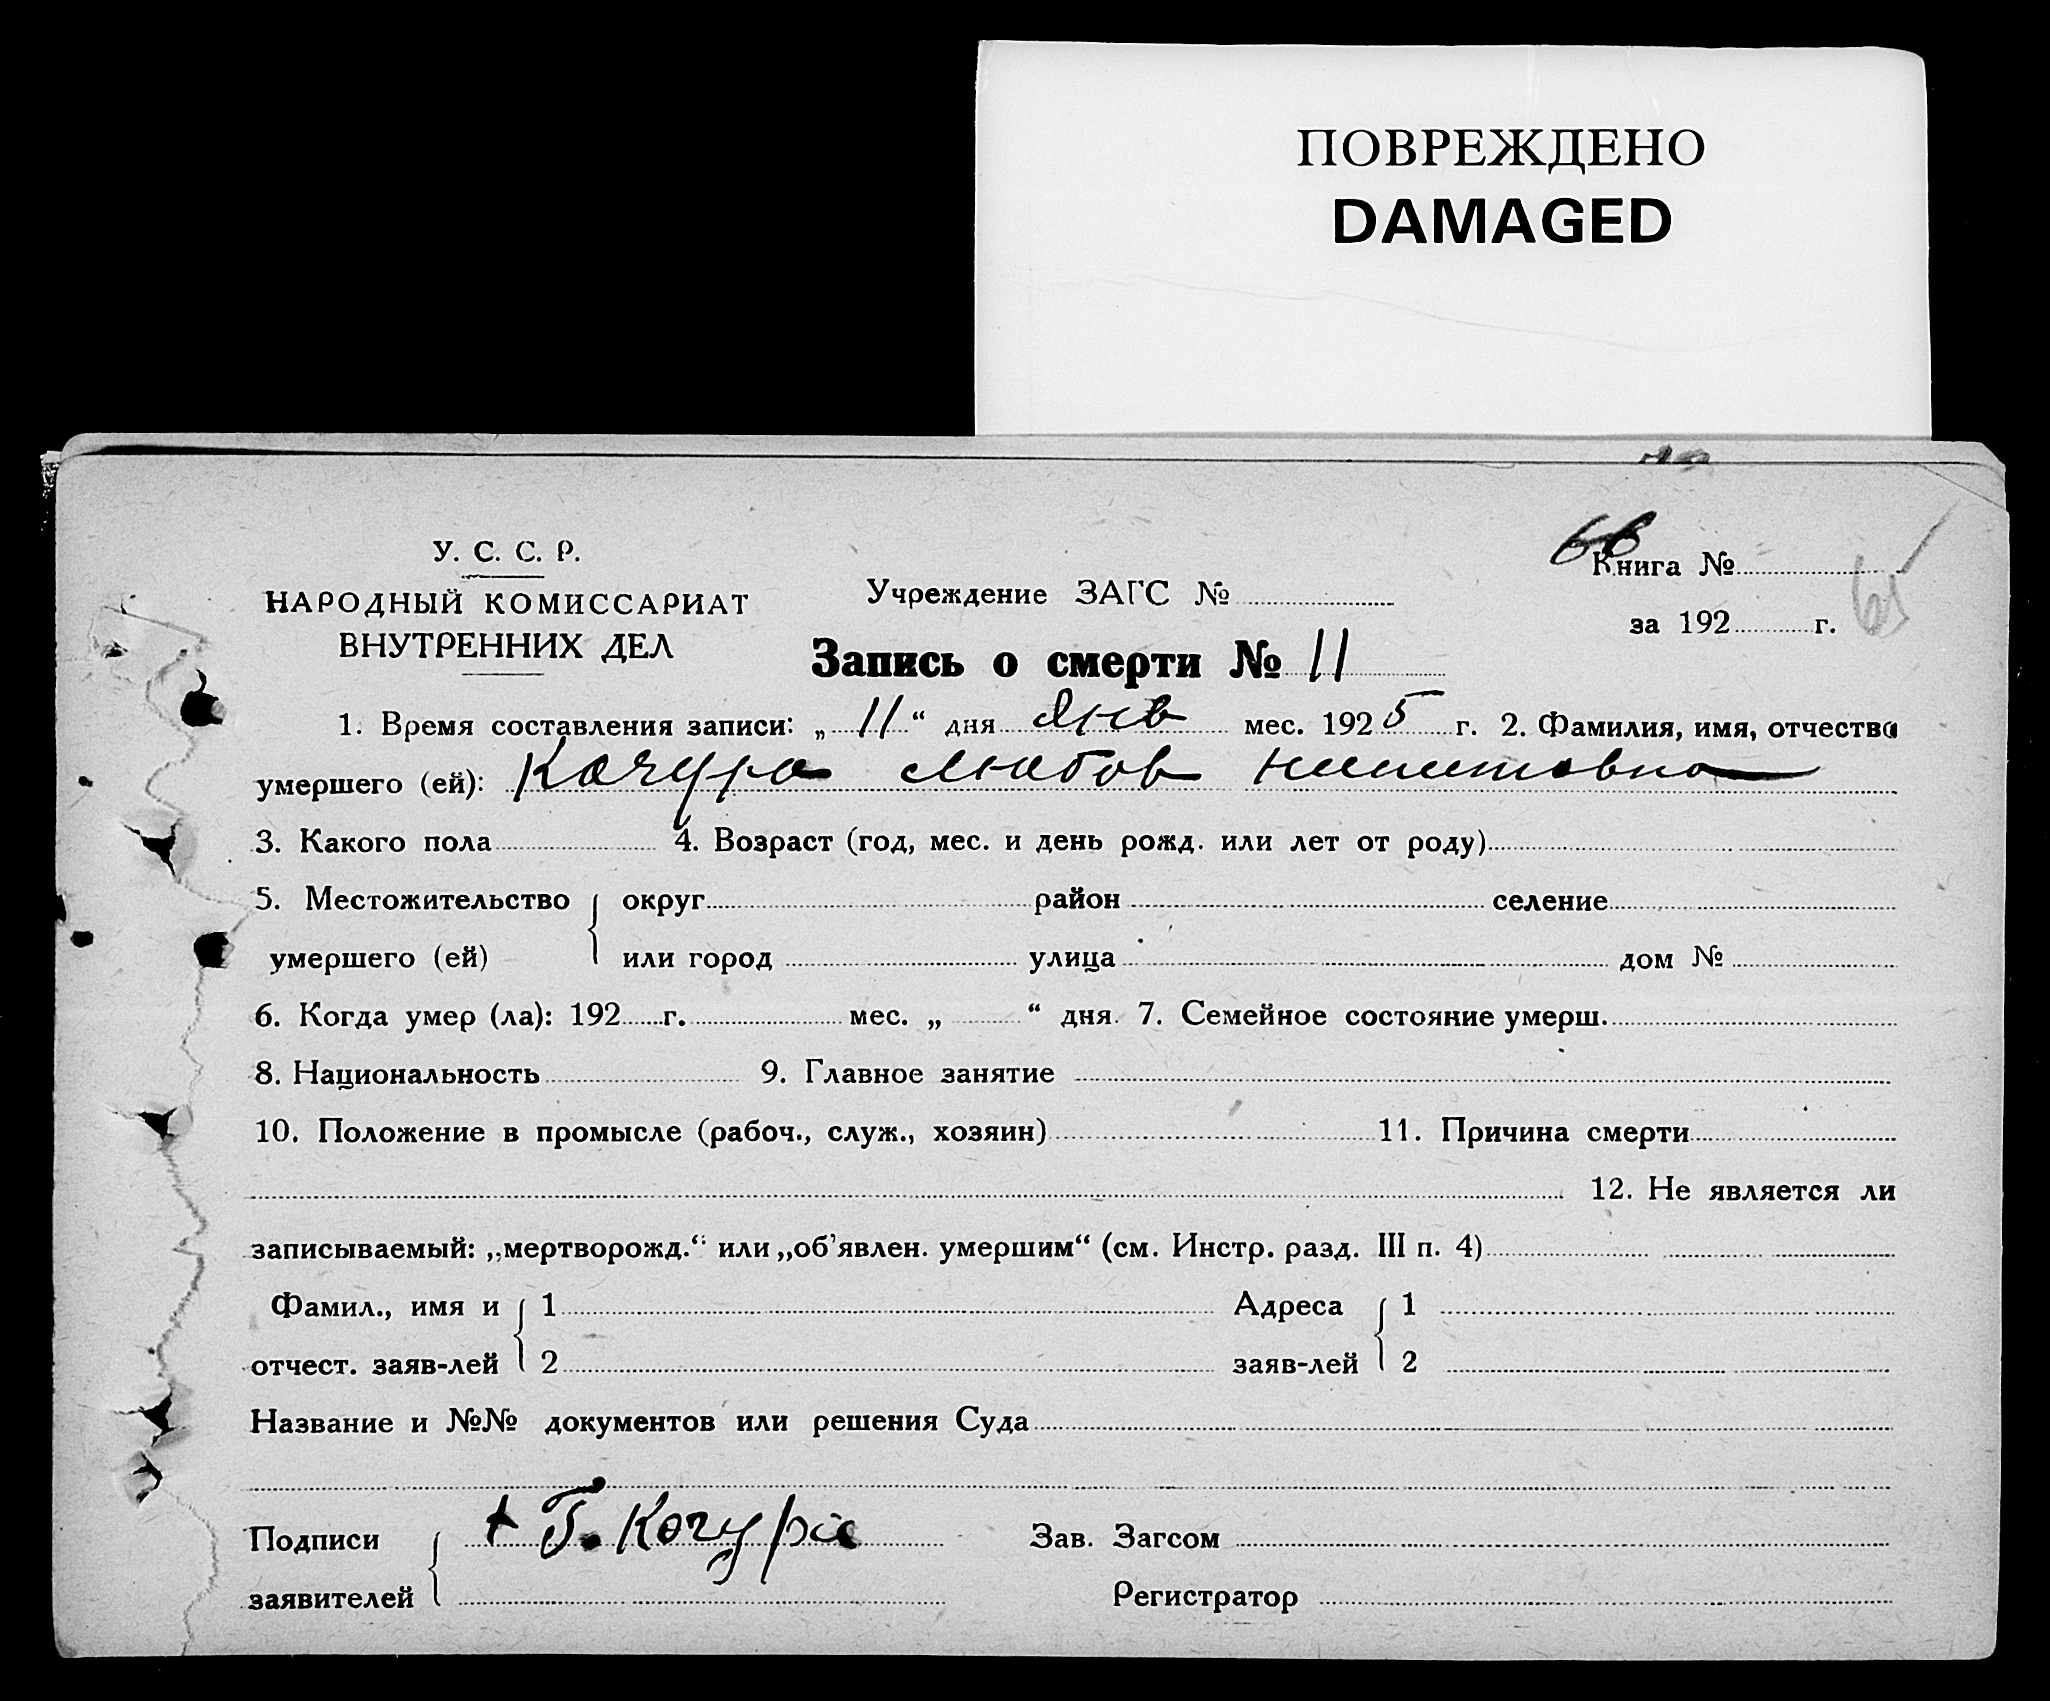 ПОВРЕЖДЕНО
DAMAGED
У. С. С. Р.
НАРОДНЫЙ КОМИССАРИАТ
ВНУТРЕННИХ ДЕЛ
Учреждение ЗАГС №
66
Книга №
за 192 г.
65
Запись о смерти № 11
1. Время составления записи: „ 11 “ дня Янв мес. 192 5 г. 2. Фамилия, имя, отчество
умершего (ей): Кочура Любов Никитовна
3. Какого пола 4. Возраст (год, мес. и день рожд. или лет от роду)
5. Местожительство { округ район селение
умершего (ей) или город улица дом №
6. Когда умер (ла): 192 г. мес. „ “ дня 7. Семейное состояние умерш.
8. Национальность 9. Главное занятие
10. Положение в промысле (рабоч., служ., хозяин) 11. Причина смерти
12. Не является ли
записываемый: „мертворожд.“ или „об'явлен. умершим“ (см. Инстр. разд. III п. 4)
Фамил., имя и { 1 Адреса { 1
отчест. заяв-лей 2 заяв-лей 2
Название и №№ документов или решения Суда
Подписи { + Г. Кочура Зав. Загсом
заявителей Регистратор